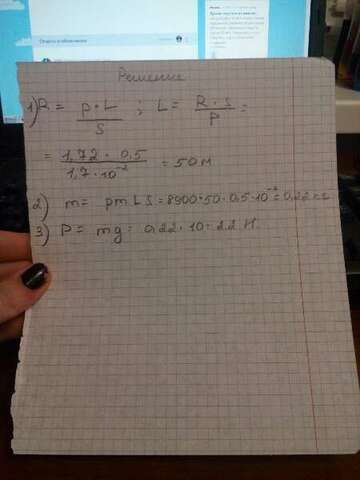 Решение
1) R = p·L / S ; L = R·S / p =
= 1,72 · 0,5 / 1,7·10⁻² = 50 м
2) m = pm L S = 8900·50·0,5·10⁻² = 0,22 кг
3) P = mg = 0,22·10 = 2,2 Н.